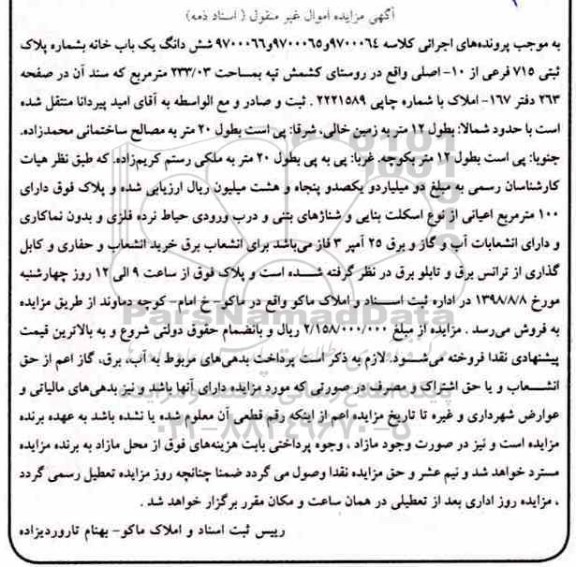 آگهی مزایده اموال غیر منقول ( اسناد ذمه)
به موجب پرونده‌های اجرائی کلاسه ۹۷۰۰۰۶۴و۹۷۰۰۰۶۵و۹۷۰۰۰۶۶ شش دانگ یک باب خانه بشماره پلاک
ثبتی ۷۱۵ فرعی از ۱۰- اصلی واقع در روستای کشمش تپه بمساحت ۲۳۳/۰۳ مترمربع که سند آن در صفحه
۲۶۳ دفتر ۱۶۷- املاک با شماره چاپی ۲۲۲۱۵۸۹ . ثبت و صادر و مع الواسطه به آقای امید پیردانا منتقل شده
است با حدود شمالا: بطول ۱۲ متر به زمین خالی، شرقا: پی است بطول ۲۰ متر به مصالح ساختمانی محمدزاده.
جنوبا: پی است بطول ۱۲ متر بکوچه. غربا: پی به پی بطول ۲۰ متر به ملکی رستم کریم‌زاده. که طبق نظر هیات
کارشناسان رسمی به مبلغ دو میلیاردو یکصدو پنجاه و هشت میلیون ریال ارزیابی شده و پلاک فوق دارای
۱۰۰ مترمربع اعیانی از نوع اسکلت بنایی و شناژهای بتنی و درب ورودی حیاط نرده فلزی و بدون نماکاری
و دارای انشعابات آب و گاز و برق ۲۵ آمپر ۳ فاز می‌باشد برای انشعاب برق خرید انشعاب و حفاری و کابل
گذاری از ترانس برق و تابلو برق در نظر گرفته شده است و پلاک فوق از ساعت ۹ الی ۱۲ روز چهارشنبه
مورخ ۱۳۹۸/۸/۸ در اداره ثبت اسناد و املاک ماکو واقع در ماکو- خ امام- کوچه دماوند از طریق مزایده
به فروش می‌رسد . مزایده از مبلغ ۲/۱۵۸/۰۰۰/۰۰۰ ریال و بانضمام حقوق دولتی شروع و به بالاترین قیمت
پیشنهادی نقدا فروخته می‌شود. لازم به ذکر است پرداخت بدهی‌های مربوط به آب، برق، گاز اعم از حق
انشعاب و یا حق اشتراک و مصرف در صورتی که مورد مزایده دارای آنها باشد و نیز بدهی‌های مالیاتی و
عوارض شهرداری و غیره تا تاریخ مزایده اعم از اینکه رقم قطعی آن معلوم شده یا نشده باشد به عهده برنده
مزایده است و نیز در صورت وجود مازاد ، وجوه پرداختی بابت هزینه‌های فوق از محل مازاد به برنده مزایده
مسترد خواهد شد و نیم عشر و حق مزایده نقدا وصول می گردد ضمنا چنانچه روز مزایده تعطیل رسمی گردد
، مزایده روز اداری بعد از تعطیلی در همان ساعت و مکان مقرر برگزار خواهد شد .
رییس ثبت اسناد و املاک ماکو- بهنام تاروردیزاده
ParsNamadData
۰۲۱-۸۸۳۴۹۶۷۰-۵